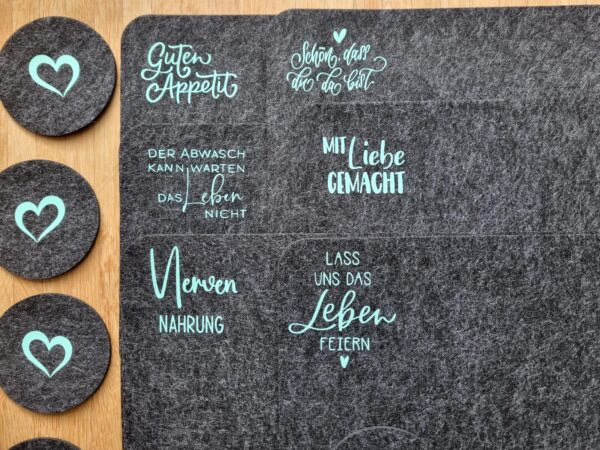 Guten
Appetit
Schön, dass
du da bist.
DER ABWASCH
KANN WARTEN
DAS Leben
NICHT
MIT Liebe
GEMACHT
Nerven
NAHRUNG
LASS
UNS DAS
Leben
FEIERN